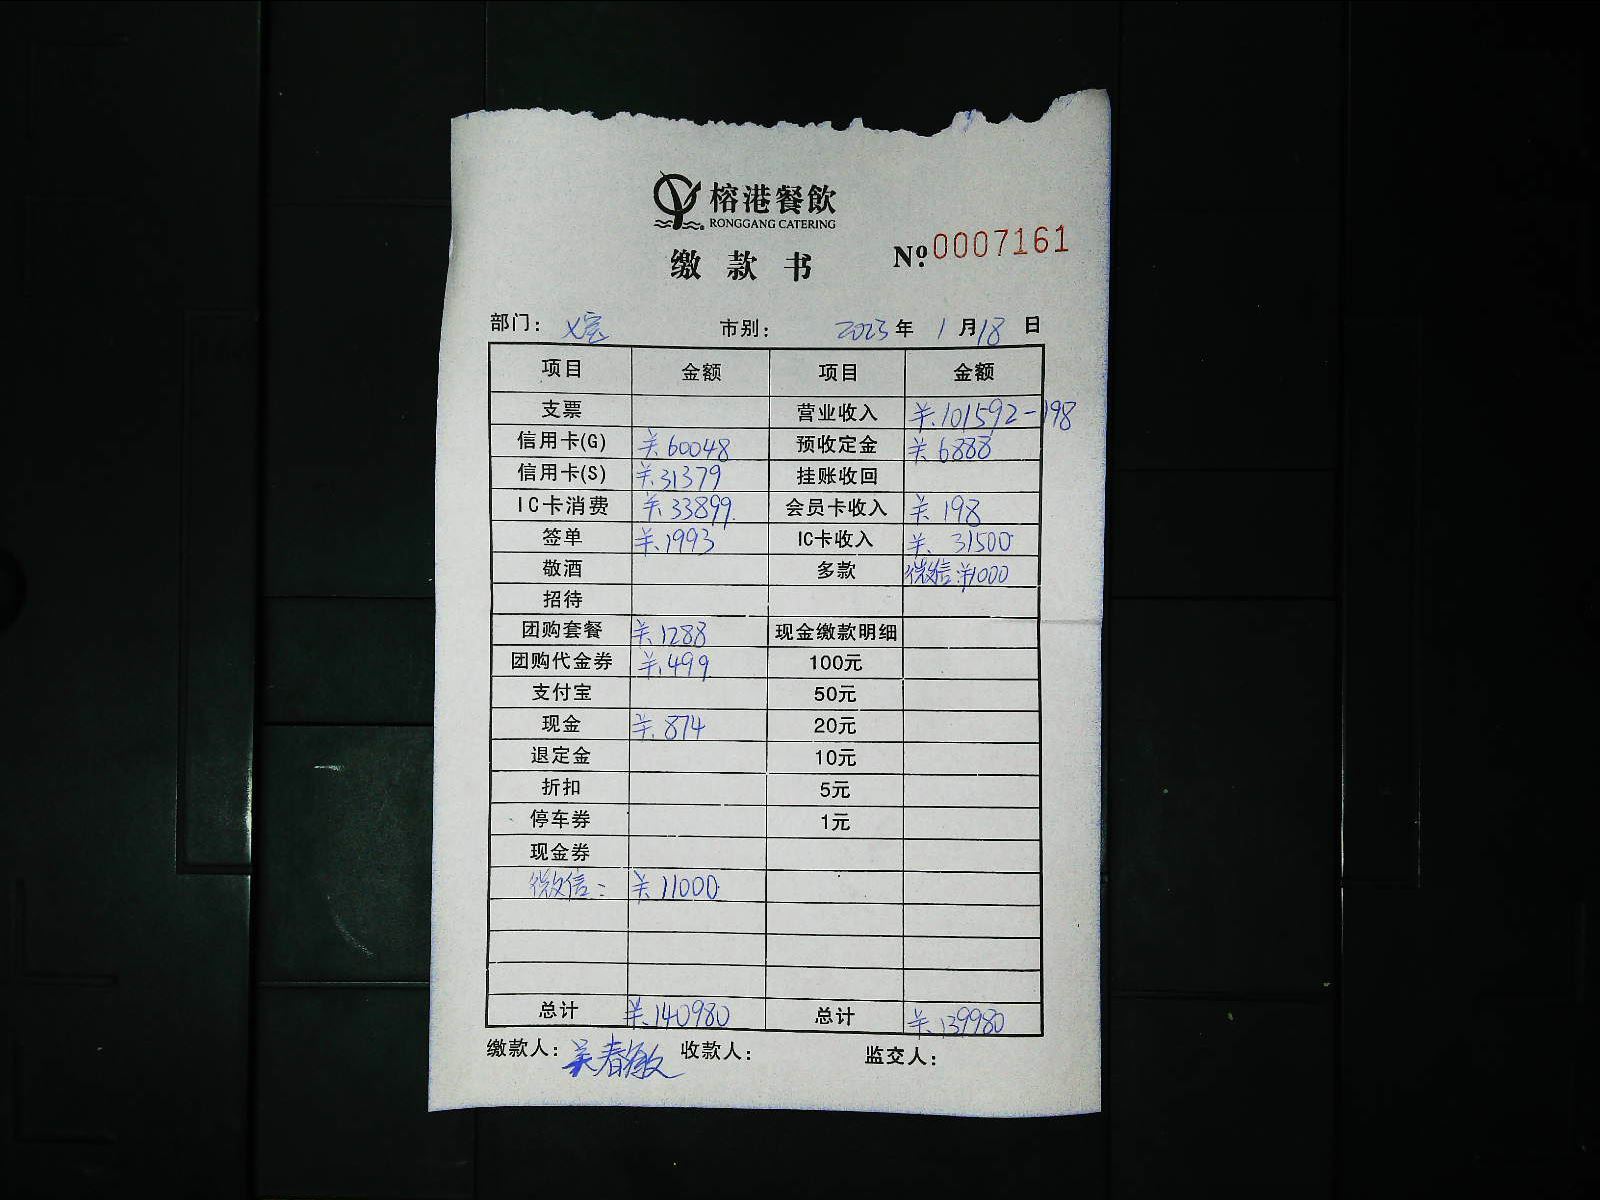 榕港餐飲
RONGGANG CATERING
缴款书 №:0007161
部门: 市别: 2023年1月18日
项目 金额 项目 金额
支票 营业收入 ¥.101592-198
信用卡(G) ¥60048 预收定金 ¥6888
信用卡(S) ¥.31379 挂账收回
IC卡消费 ¥.33899. 会员卡收入 ¥.198
签单 ¥.1993 IC卡收入 ¥.31500
敬酒 多款 微信:¥1000
招待
团购套餐 ¥.1288 现金缴款明细
团购代金券 ¥.499 100元
支付宝 50元
现金 ¥.874 20元
退定金 10元
折扣 5元
停车券 1元
现金券
微信: ¥11000
总计 ¥.140980 总计 ¥.139980
缴款人:吴春敏 收款人: 监交人: